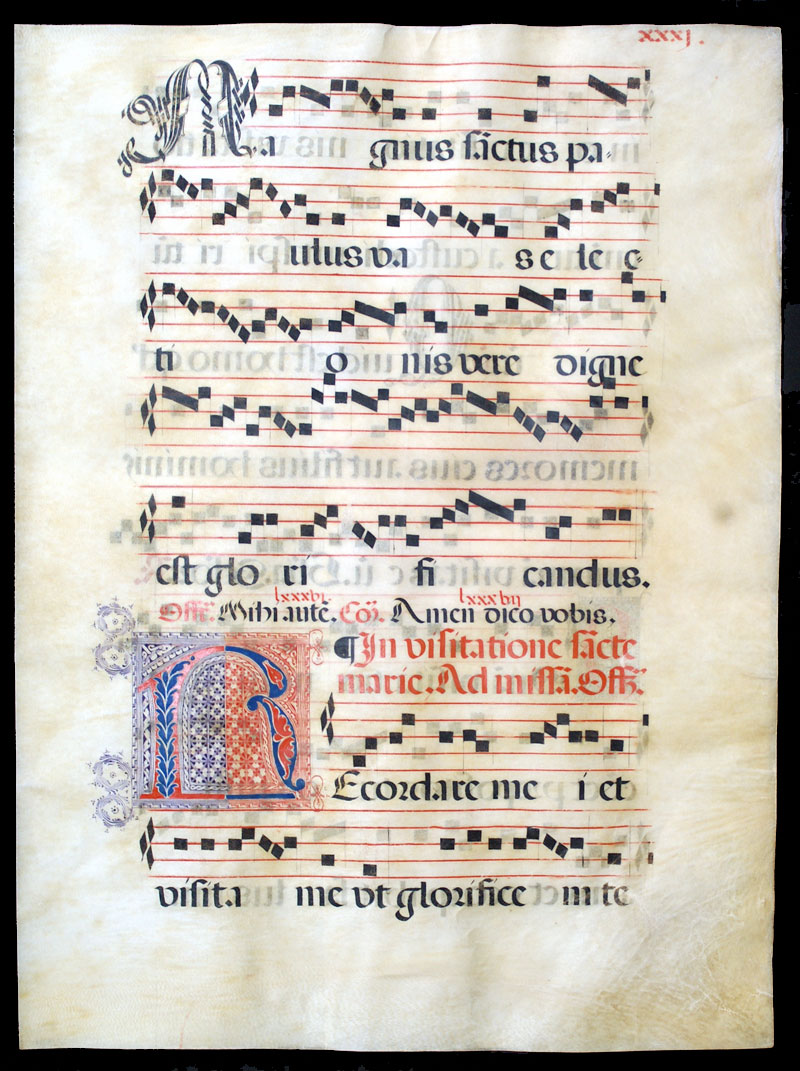 xxxj.
Magnus sāctus pa-
ulus va s e le c-
ti o nis vere digne
est glo ri fi candus.
lxxxvj. lxxxvij
Offm̄. Mihi autē. Cōō. Amen dico vobis.
¶ In visitatione sāctę
marie. Ad missā. Offm̄.
Recordare me i et
visita me vt glorifice m te